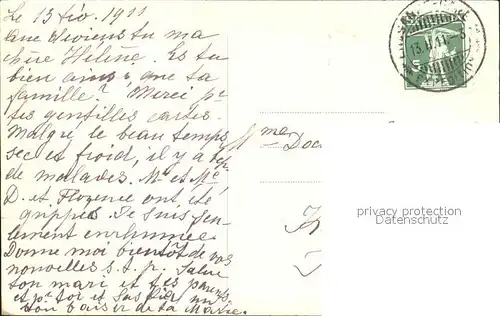 Le 13 Fév. 1911
Que deviens tu ma
chère Hélène. Es tu
bien ainsi que ta
famille? Merci pr
tes gentilles cartes.
Malgré le beau temps
sec et froid, il y a bcp
de malades. Mr et Me
D. et Florence ont été
grippés. Je suis seu-
lement enrhumée.
Donne moi bientôt de vos
nouvelles s.t.p. Salue
ton mari et tes parents
et pr toi et
bon baiser de ta Marie.
Mme Doc
13.II.11
5
privacy protection
Datenschutz